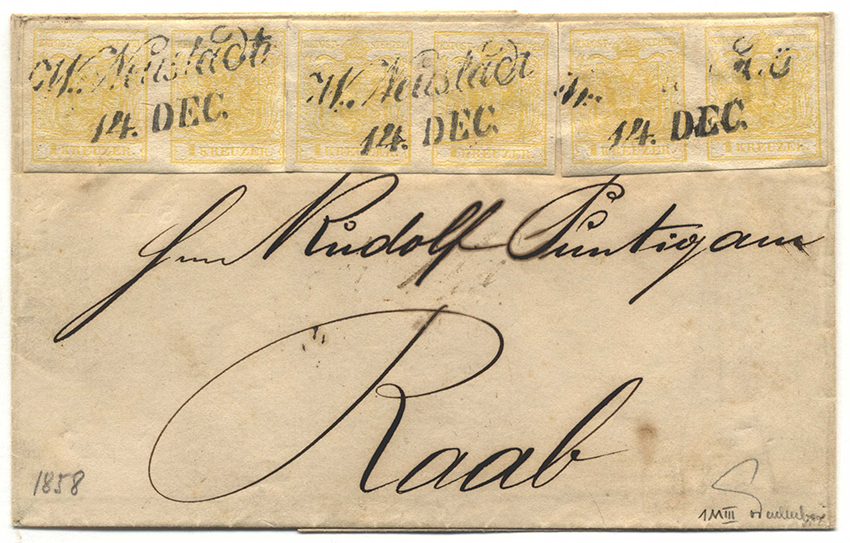 W. Neustadt W. Neustadt W.
14. DEC. 14. DEC. 14. DEC.
1 KREUZER. 1 KREUZER. 1 KREUZER. 1 KREUZER. 1 KREUZER. 1 KREUZER.
Hrn Rudolf Puntigam
Raab
1858
1MIII